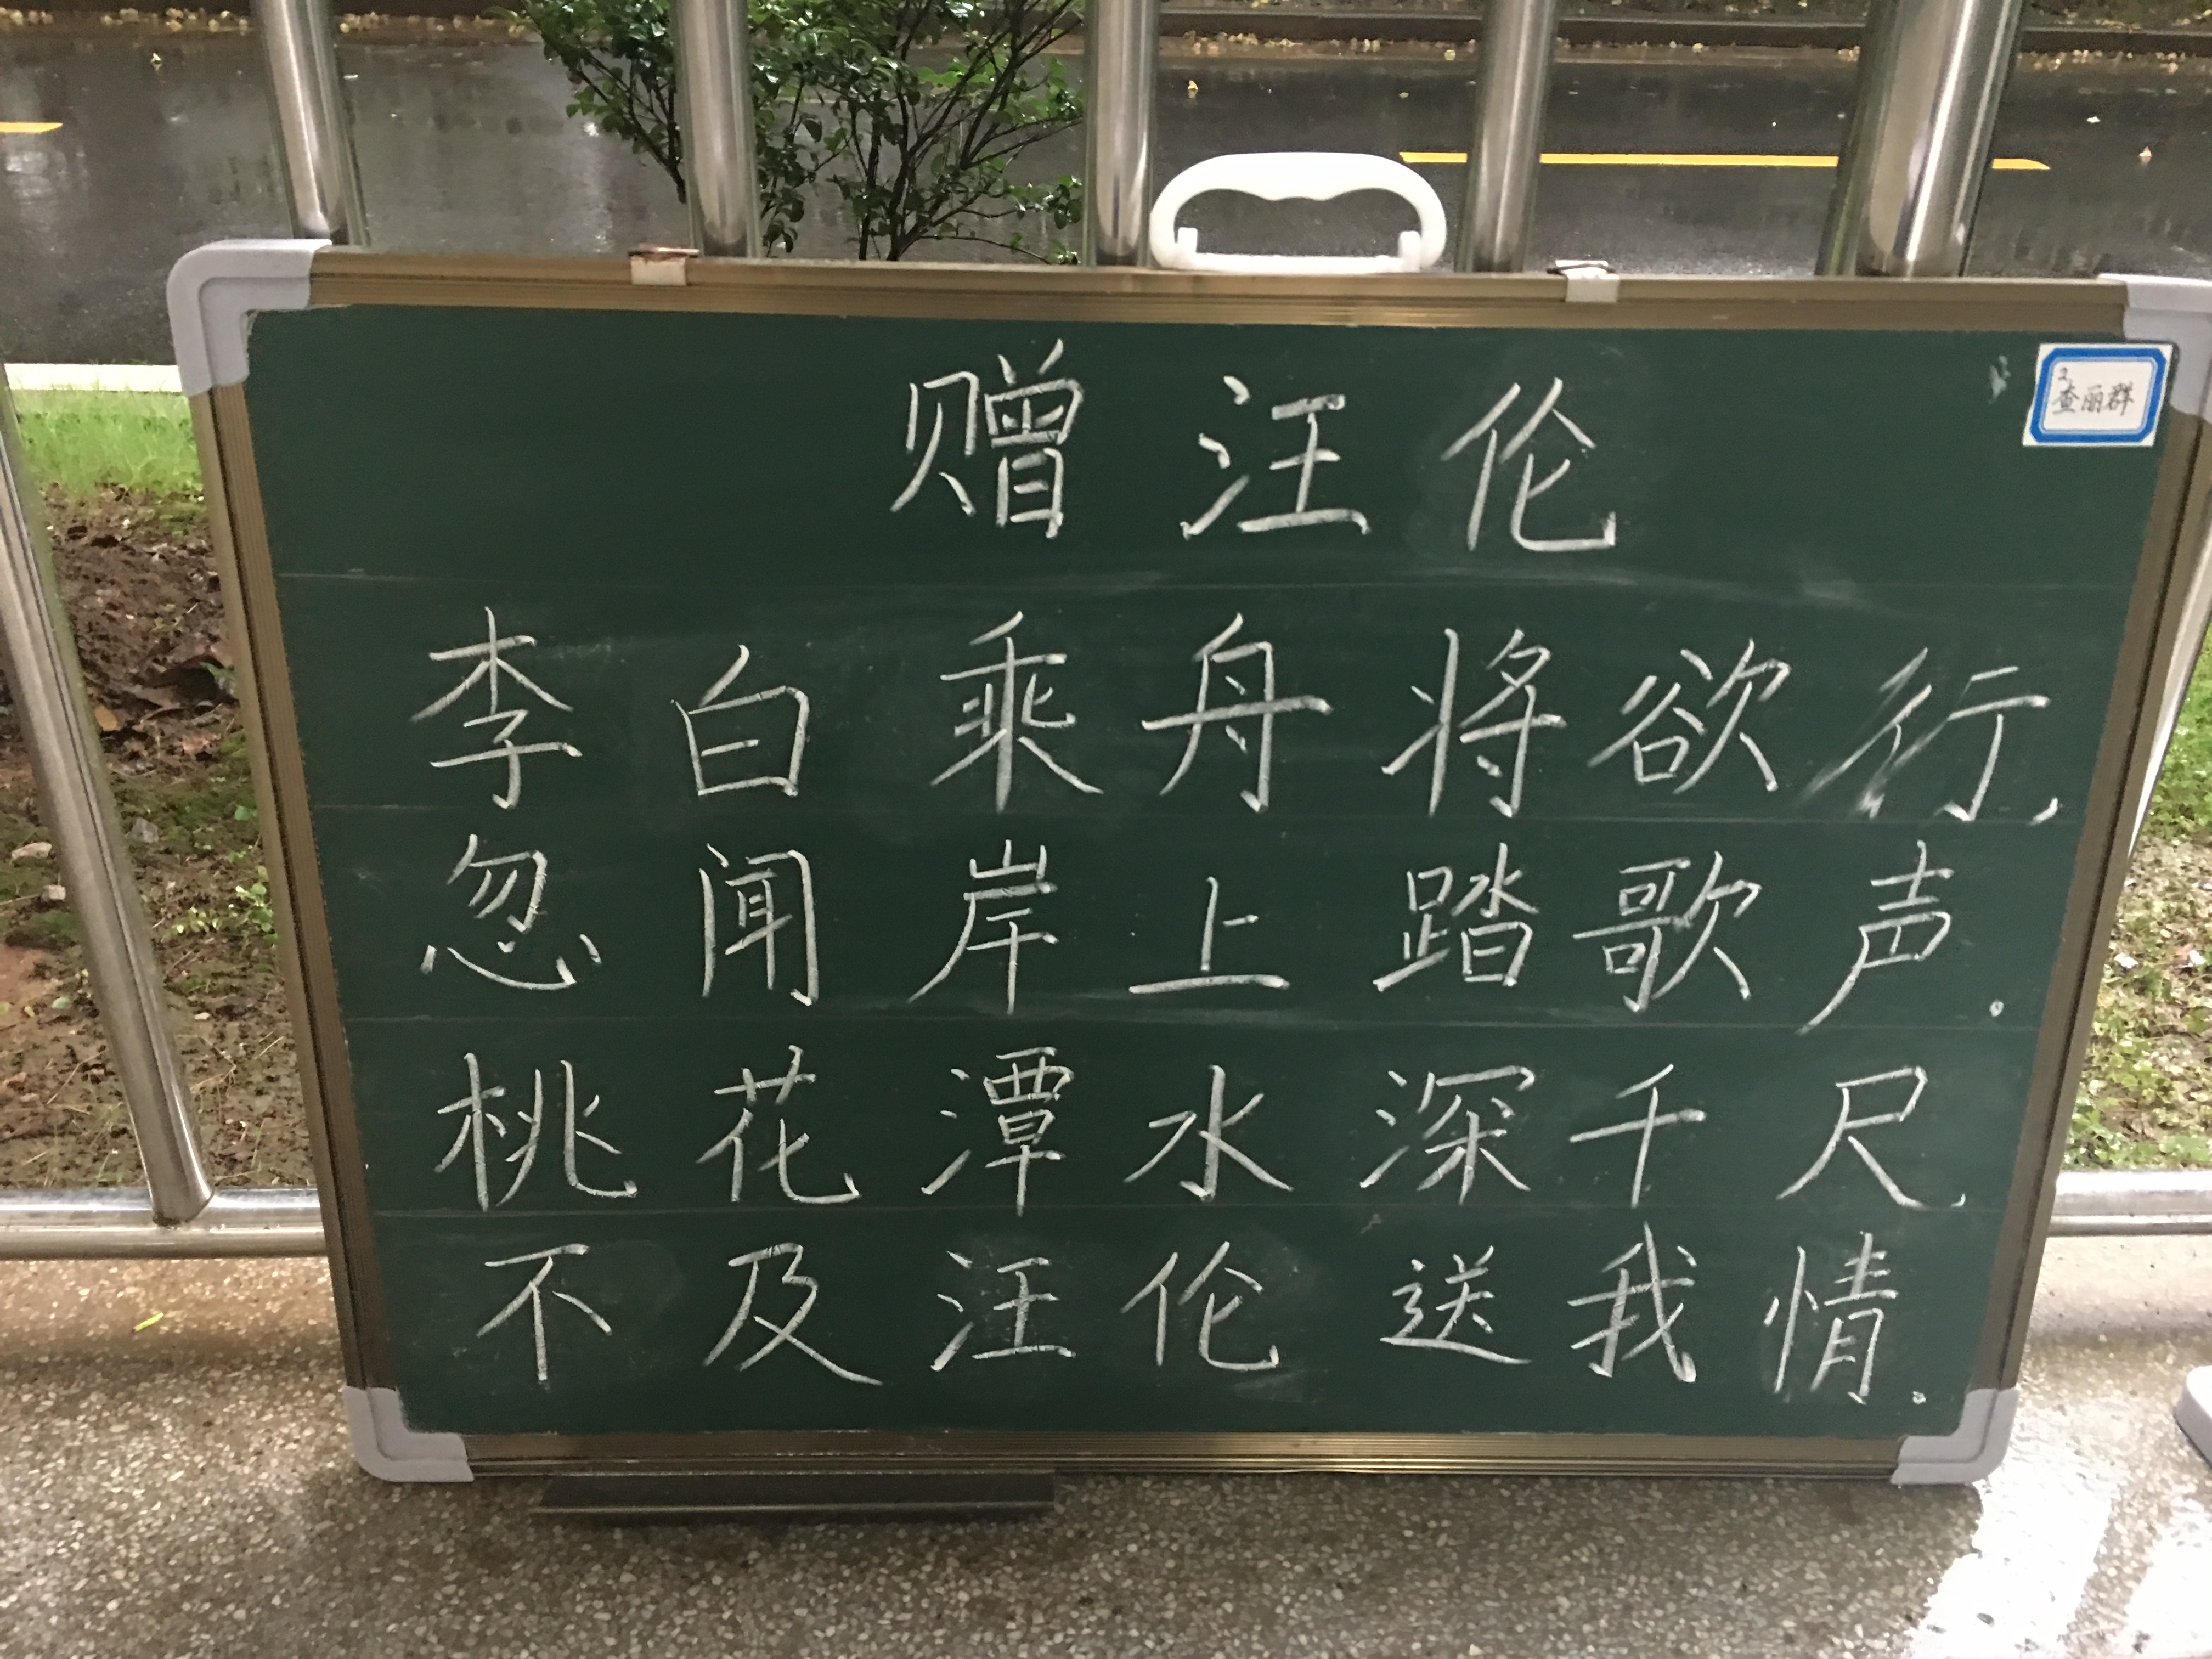 赠汪伦
2
查丽群
李白乘舟将欲行,
忽闻岸上踏歌声.
桃花潭水深千尺,
不及汪伦送我情.